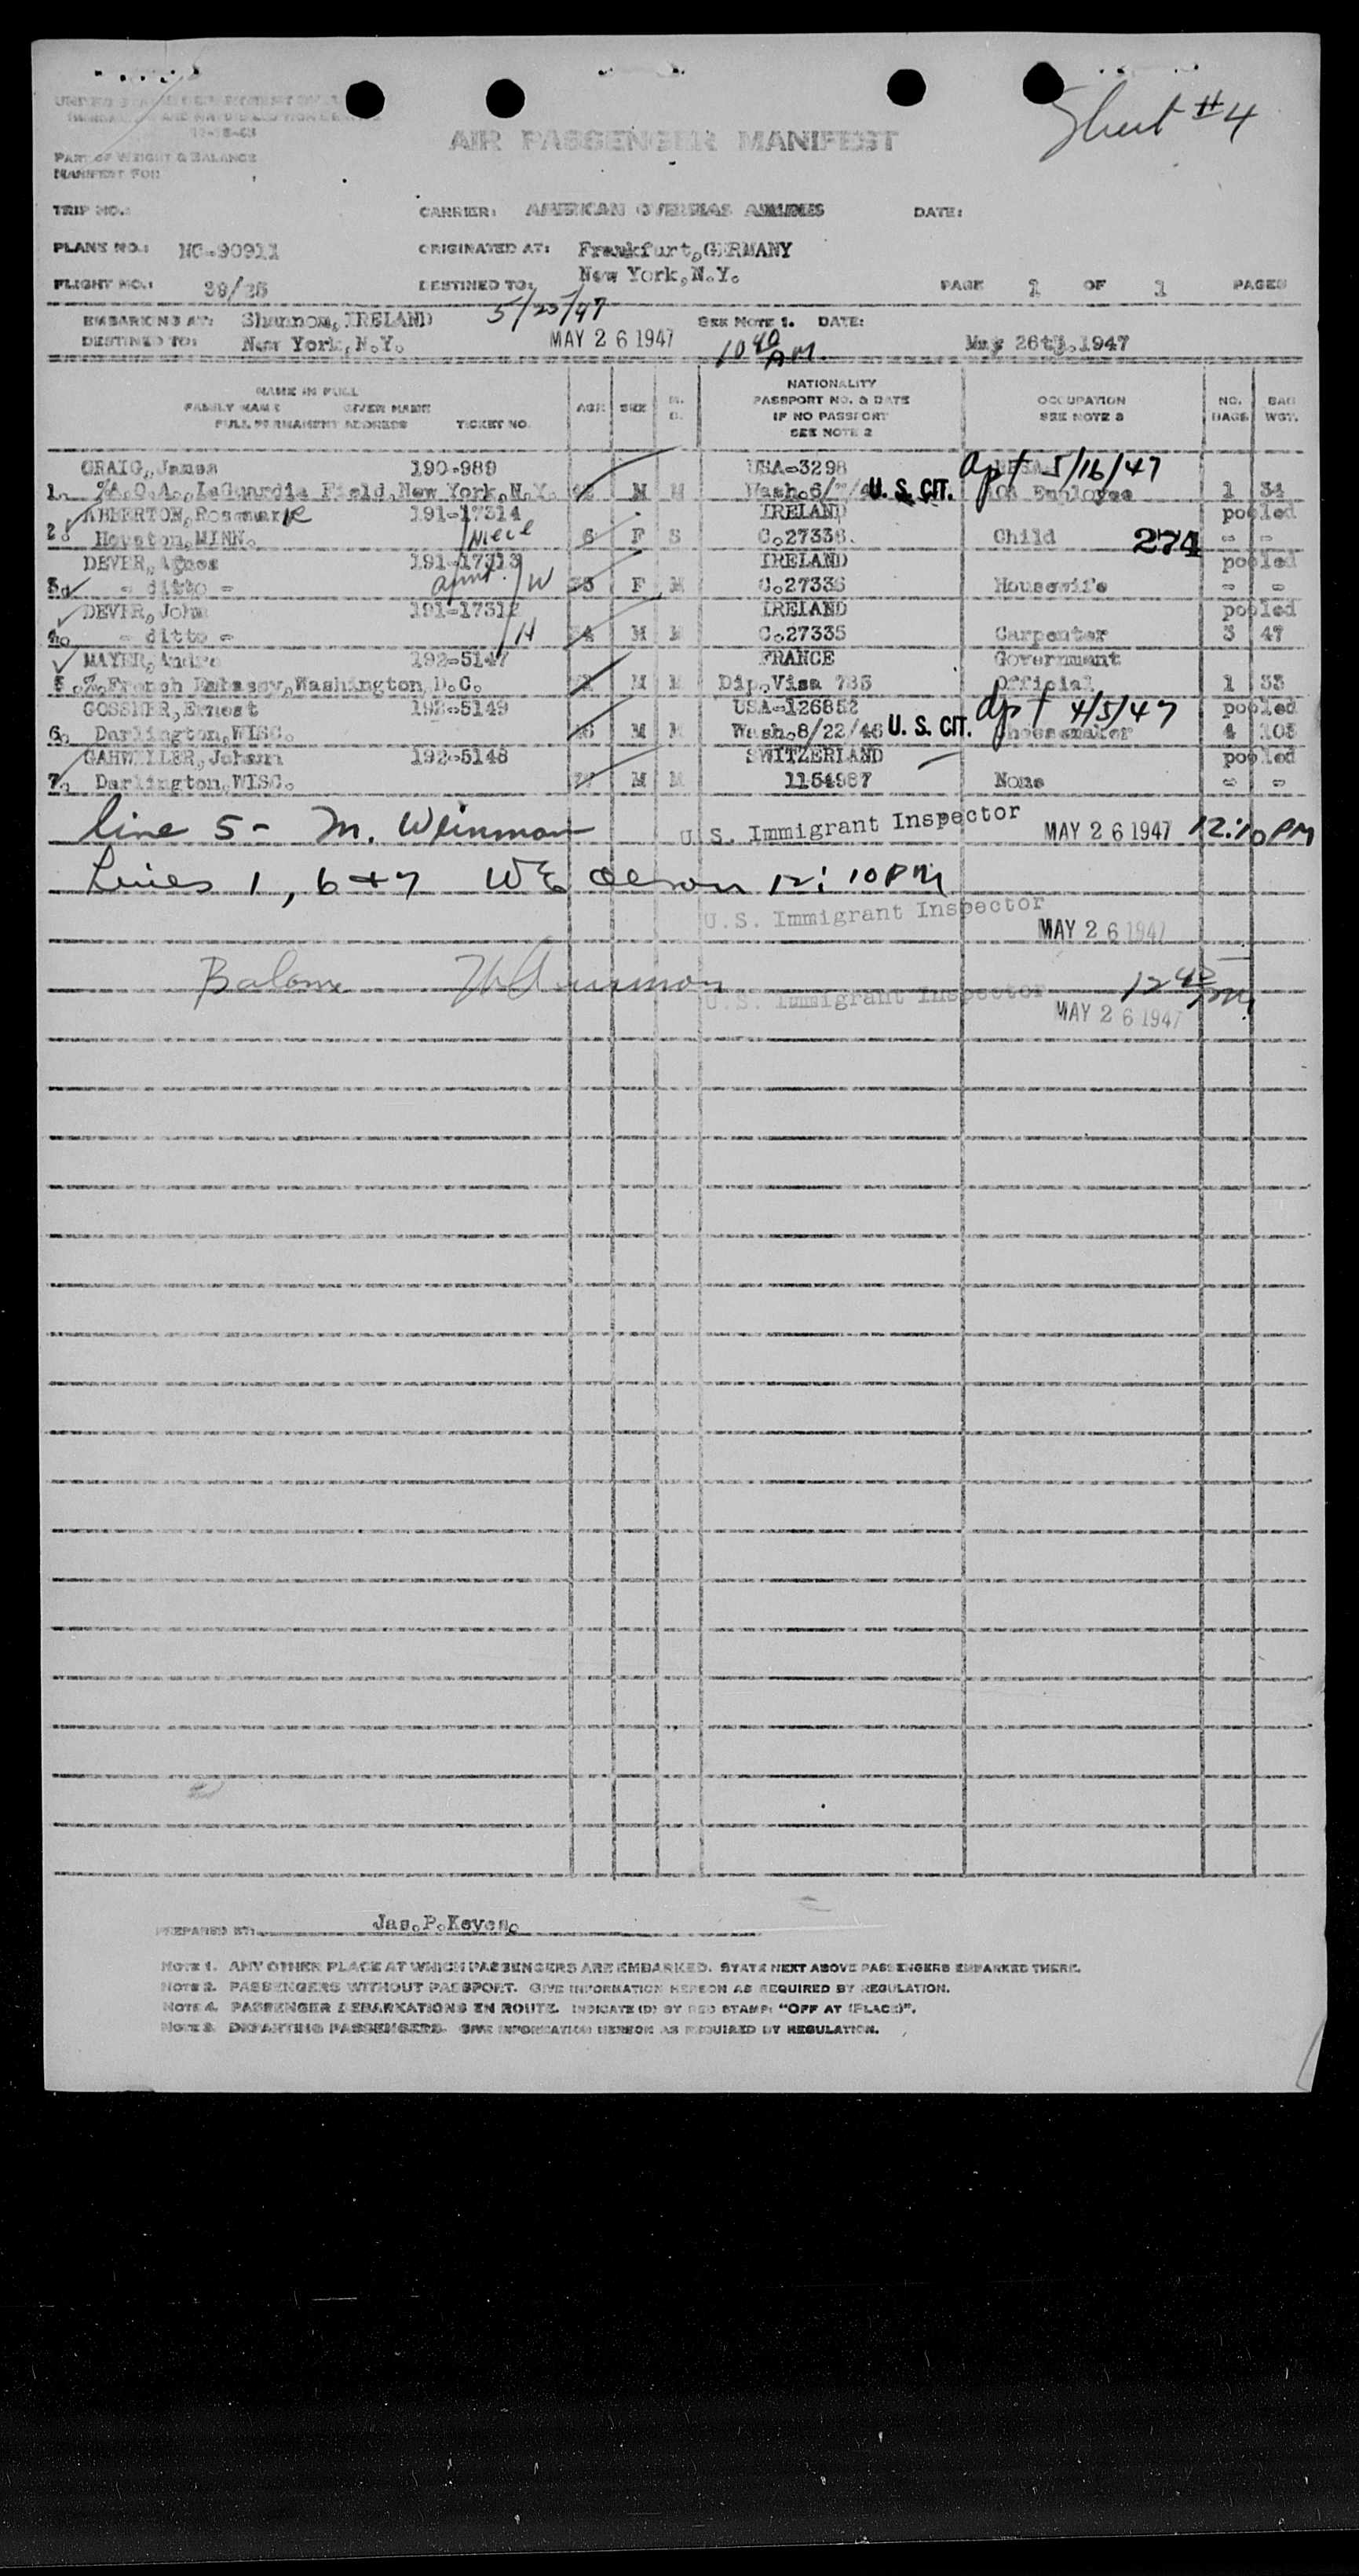 Sheet #4
AIR PASSENGER MANIFEST
PART OF WEIGHT & BALANCE
MANIFEST FOR
TRIP NO.: CARRIER: AMERICAN OVERSEAS AIRLINES DATE:
PLANE NO.: NC-90911 ORIGINATED AT: Frankfurt, GERMANY
New York, N.Y.
FLIGHT NO.: DESTINED TO: PAGE 1 OF 1 PAGES
EMBARKING AT: Shannon, IRELAND SEE NOTE 1. DATE:
DESTINED TO: New York, N.Y. MAY 26 1947 10 40 AM May 26th, 1947
NAME IN FULL
FAMILY NAME GIVEN NAME
FULL PERMANENT ADDRESS TICKET NO.
AGE SEX
NATIONALITY
PASSPORT NO. & DATE
IF NO PASSPORT
SEE NOTE 2
OCCUPATION
SEE NOTE 3
NO. BAGS
BAG WGT.
CRAIG, James 190-989 USA-3298 5/16/47
1. %A.O.A., LaGuardia Field, New York, N.Y. M M Wash. U. S. CIT. AOA Employee 1 34
ABBERTON, Rosemarie 191-17314 IRELAND pooled
2. Houston, MINN. Niece 6 F S C.27338. Child 274 - -
DEVER, Agnes 191-17313 IRELAND pooled
3. - ditto - W F M C.27336 Housewife - -
DEVER, John 191-17312 IRELAND pooled
4. - ditto - H M M C.27335 Carpenter 3 47
MAYER, Andre 192-5147 FRANCE Government
5. %French Embassy, Washington, D.C. M M Dip. Visa Official 1 33
GOSSNER, Ernest 192-5149 USA-126852 4/5/47 pooled
6. Darlington, WISC. M M Wash. 8/22/46 U. S. CIT. Cheesemaker 4 103
GAHWILLER, Johann 192-5148 SWITZERLAND pooled
7. Darlington, WISC. M M 1154987 None - -
line 5- M. Weinman U.S. Immigrant Inspector MAY 26 1947 12:10 PM
Lines 1, 6+7 12:10 PM
U.S. Immigrant Inspector
MAY 26 1947
U.S. Immigrant Inspector
MAY 26 1947
PREPARED BY: Jas. P. Keyes.
NOTE 1. ANY OTHER PLACE AT WHICH PASSENGERS ARE EMBARKED. STATE NEXT ABOVE PASSENGERS EMBARKED THERE.
NOTE 2. PASSENGERS WITHOUT PASSPORT. GIVE INFORMATION HEREON AS REQUIRED BY REGULATION.
NOTE 4. PASSENGER DEBARKATIONS EN ROUTE. INDICATE (D) BY RED STAMP: "OFF AT (PLACE)".
NOTE 3. DEPARTING PASSENGERS. GIVE INFORMATION HEREON AS REQUIRED BY REGULATION.